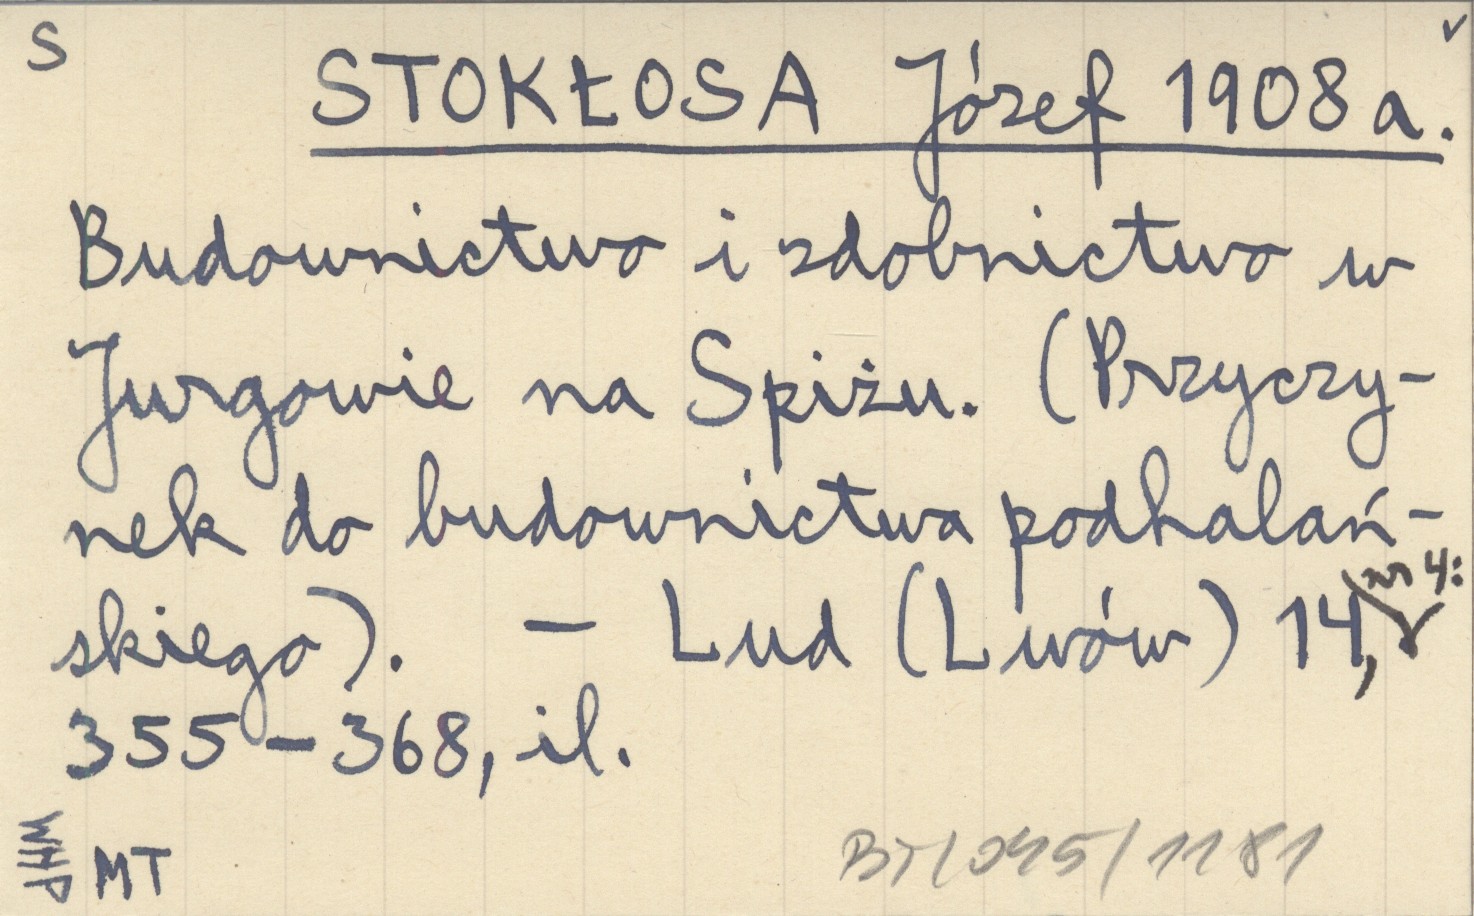 S
v
STOKŁOSA Józef 1908 a.
Budownictwo i zdobnictwo w
Jurgowie na Spiżu. (Przyczy-
nek do budownictwa podhalań-
skiego). – Lud (Lwów) 14, nr 4:
355–368, il.
WHP
MT
BT/045/1181